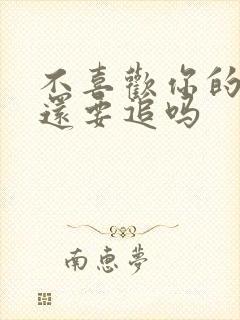 不喜歡你的
還要追吗
南惠夢